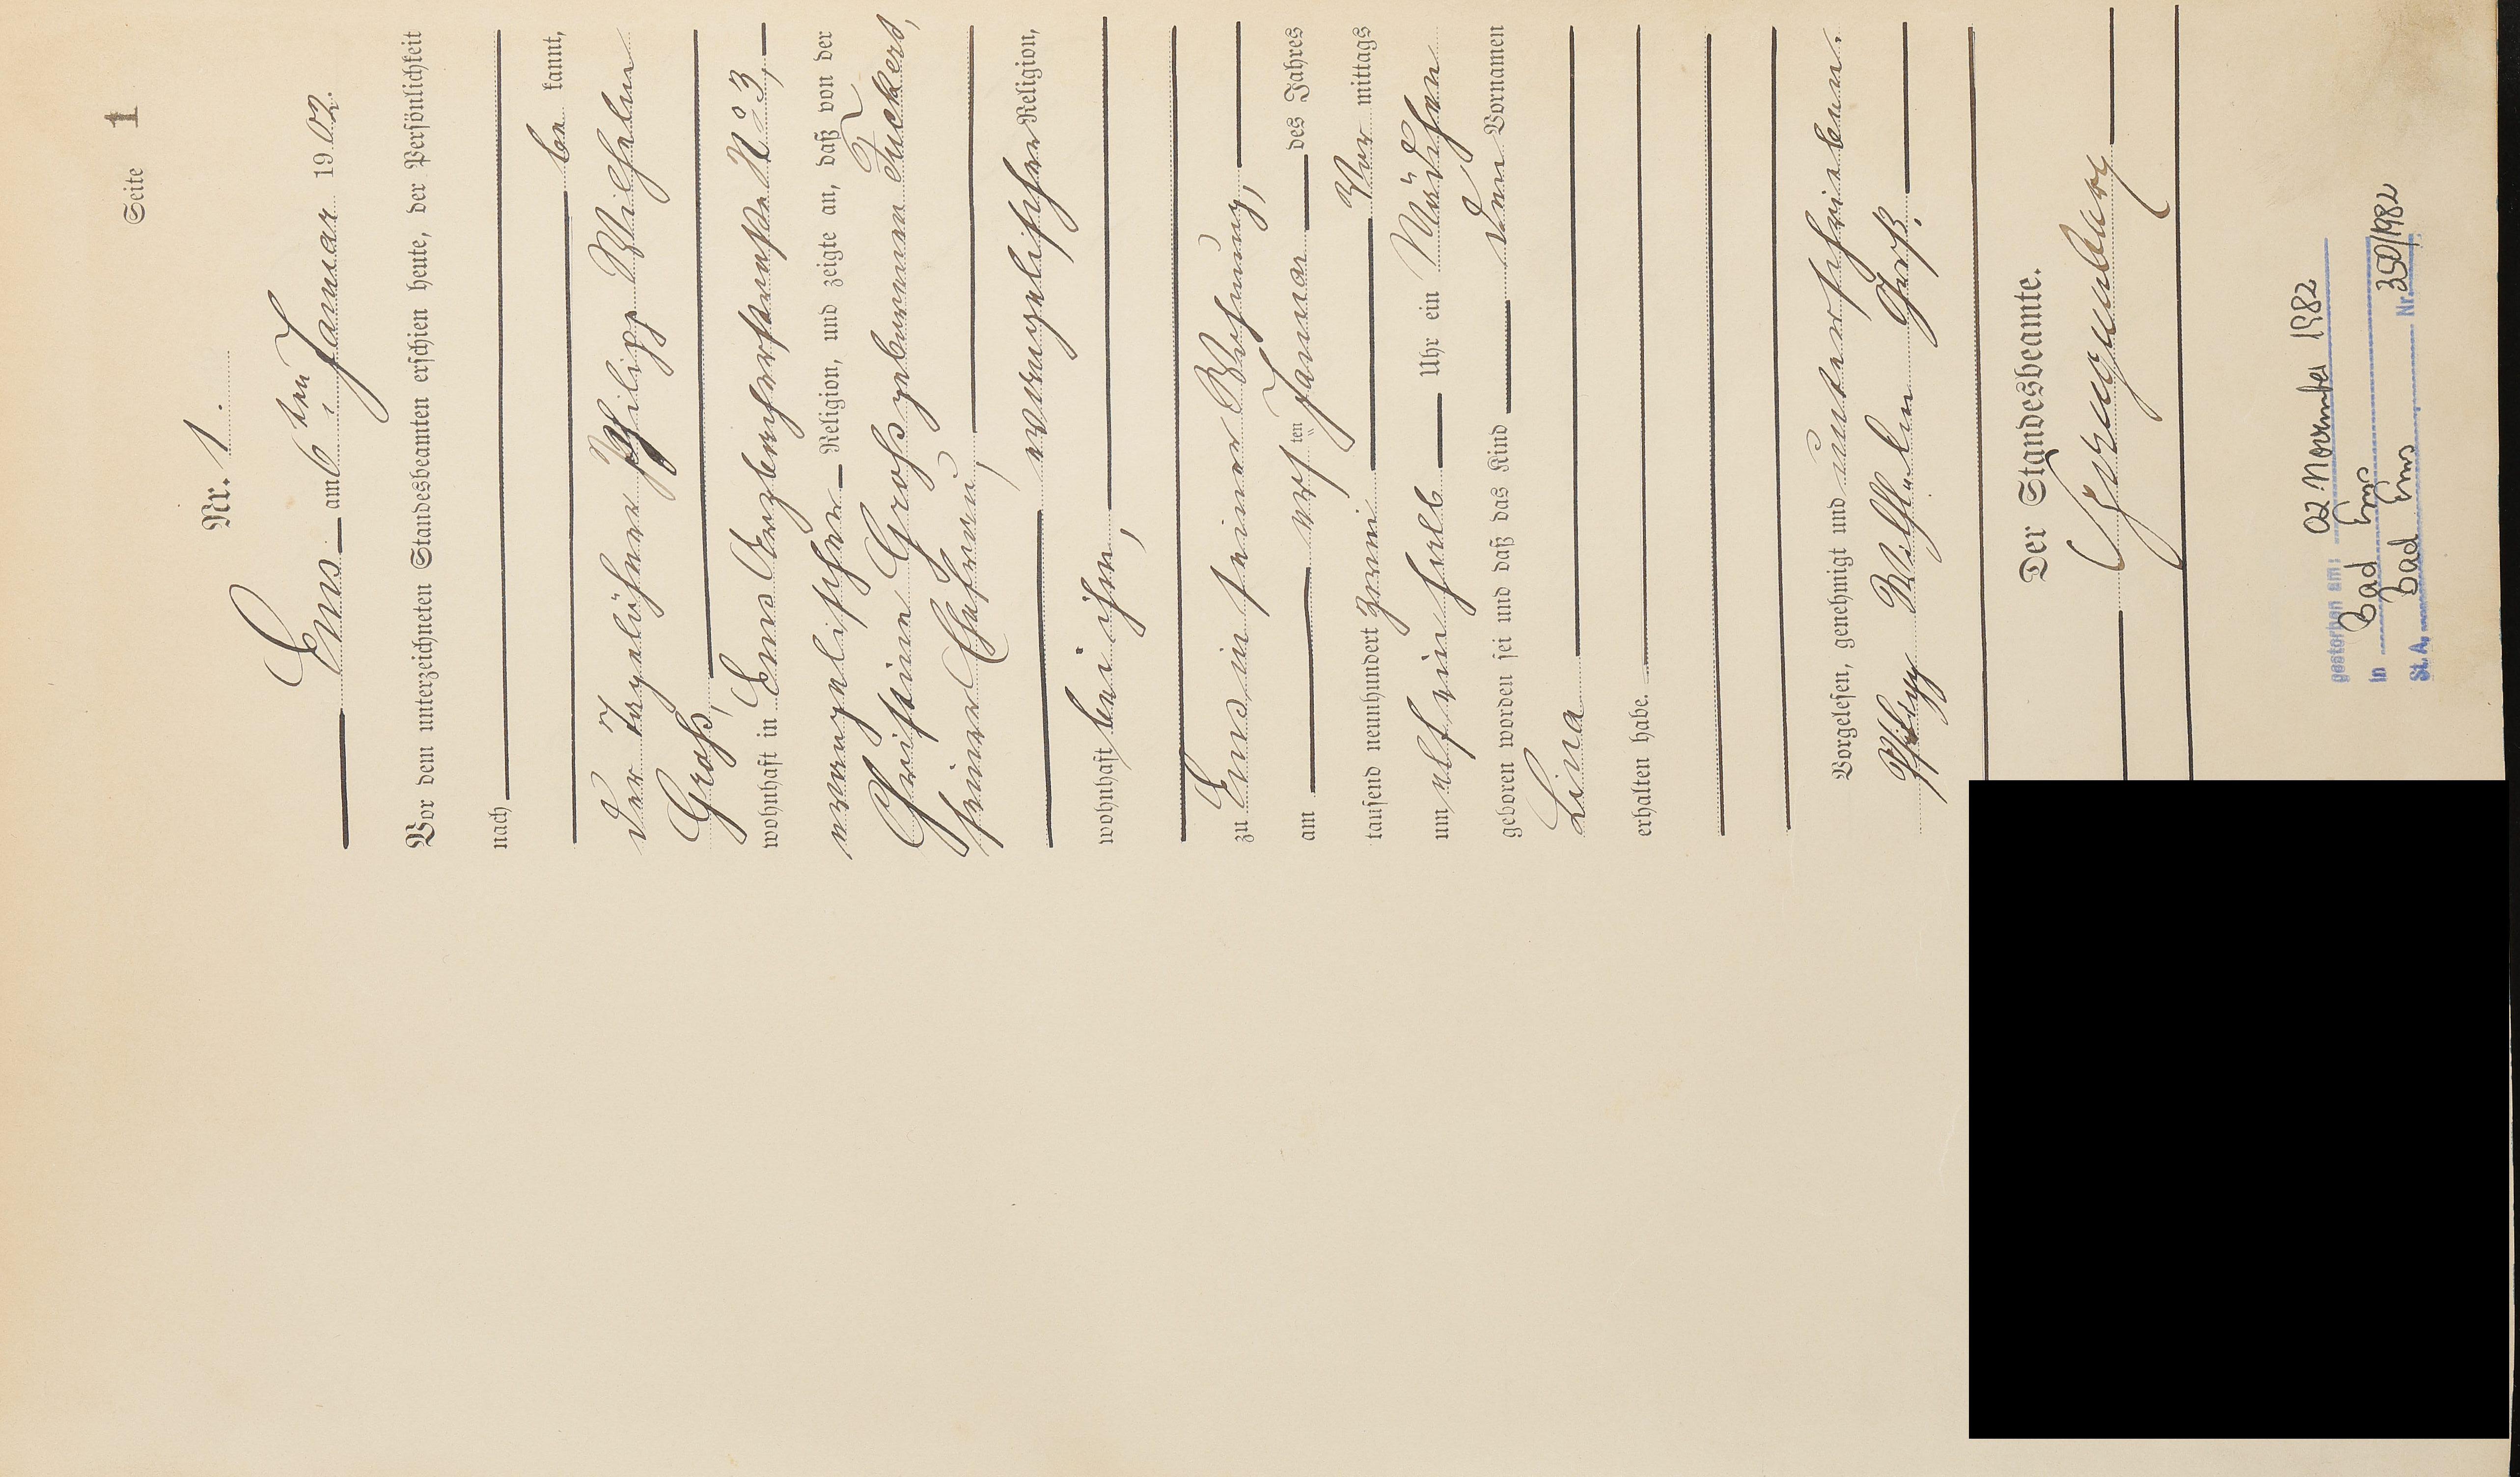 Seite 1
Nr. 1.
Ems am 6ten Januar 1902.
Vor dem unterzeichneten Standesbeamten erschien heute, der Persönlichkeit
nach
be kannt,
der Tagelöhner Philipp Wilhelm
Groß,
wohnhaft in Ems Arzbacherstraße No 3,
evangelischer Religion, und zeigte an, daß von der
Christine Groß geborenen Tuckers,
seiner Ehefrau,
evangelischer Religion,
wohnhaft bei ihm,
zu Ems in seiner Wohnung,
am ersten Januar des Jahres
tausend neunhundert zwei Vor mittags
um elf ein halb Uhr ein Mädchen
geboren worden sei und daß das Kind den Vornamen
Lina
erhalten habe.
Vorgelesen, genehmigt und unterschrieben.
Philipp Wilhelm Groß.
Der Standesbeamte.
gestorben am: 02 November 1982
in Bad Ems
St. A. Bad Ems Nr. 350/1982